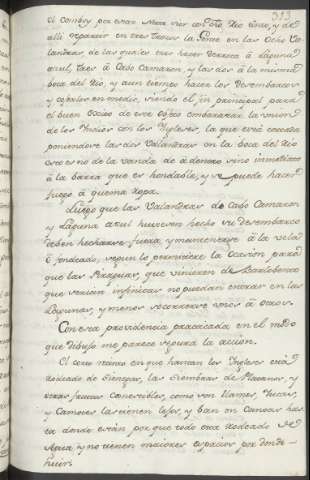 313
allí repartir en tres trozos la Gente en las Ocho Ba
landras de las quales tres hacer derrota á laguna
azul, tres á Cabo Camaron, y las dos á la misma
boca del Rio, y aun tiempo hacer los Desembarcos
y cogerlos en medio, siendo el fin principal para
el buen Exsito de este Objeto embarazar la union
de los Indios con los Ingleses, la que está
poniendose las dos Valandras en la boca del Rio
esto es no de la vanda de adentro sino inmediato
á la barra que es hondable, y se puede hacer
fuego á quema Ropa.
Luego que las Valandras de Cabo Camaron
y Laguna azul huvieren hecho su desembarco
deben hecharse fuera, y mantenerse á la vela
ó fondeado, segun lo permitiere la Ocasion para
que las Piraguas, que vinieren de Barlobento
que serian infinitas no puedan entrar en las
Lagunas, y menos socorrerse unos á otros.
Con esta providencia practicada en el modo
que dibujo me parece segura la acción.
El corto terreno en que havitan los Ingleses está
Rodeado de Sienegas, las siembras de Platanos, y
otras frutas comestibles, como son Ñames, Yucas,
y Camotes las tienen lejos, y ban en Canoas has
ta donde están por que todo está Rodeado de
Agua y no tienen maiores espacios por donde
huir.